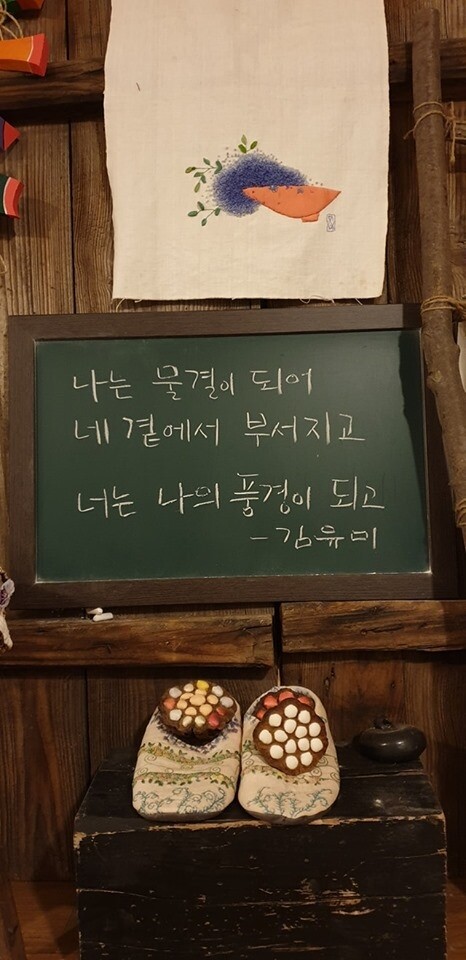 나는 물결이 되어
네 곁에서 부서지고
너는 나의 풍경이 되고
- 김유미